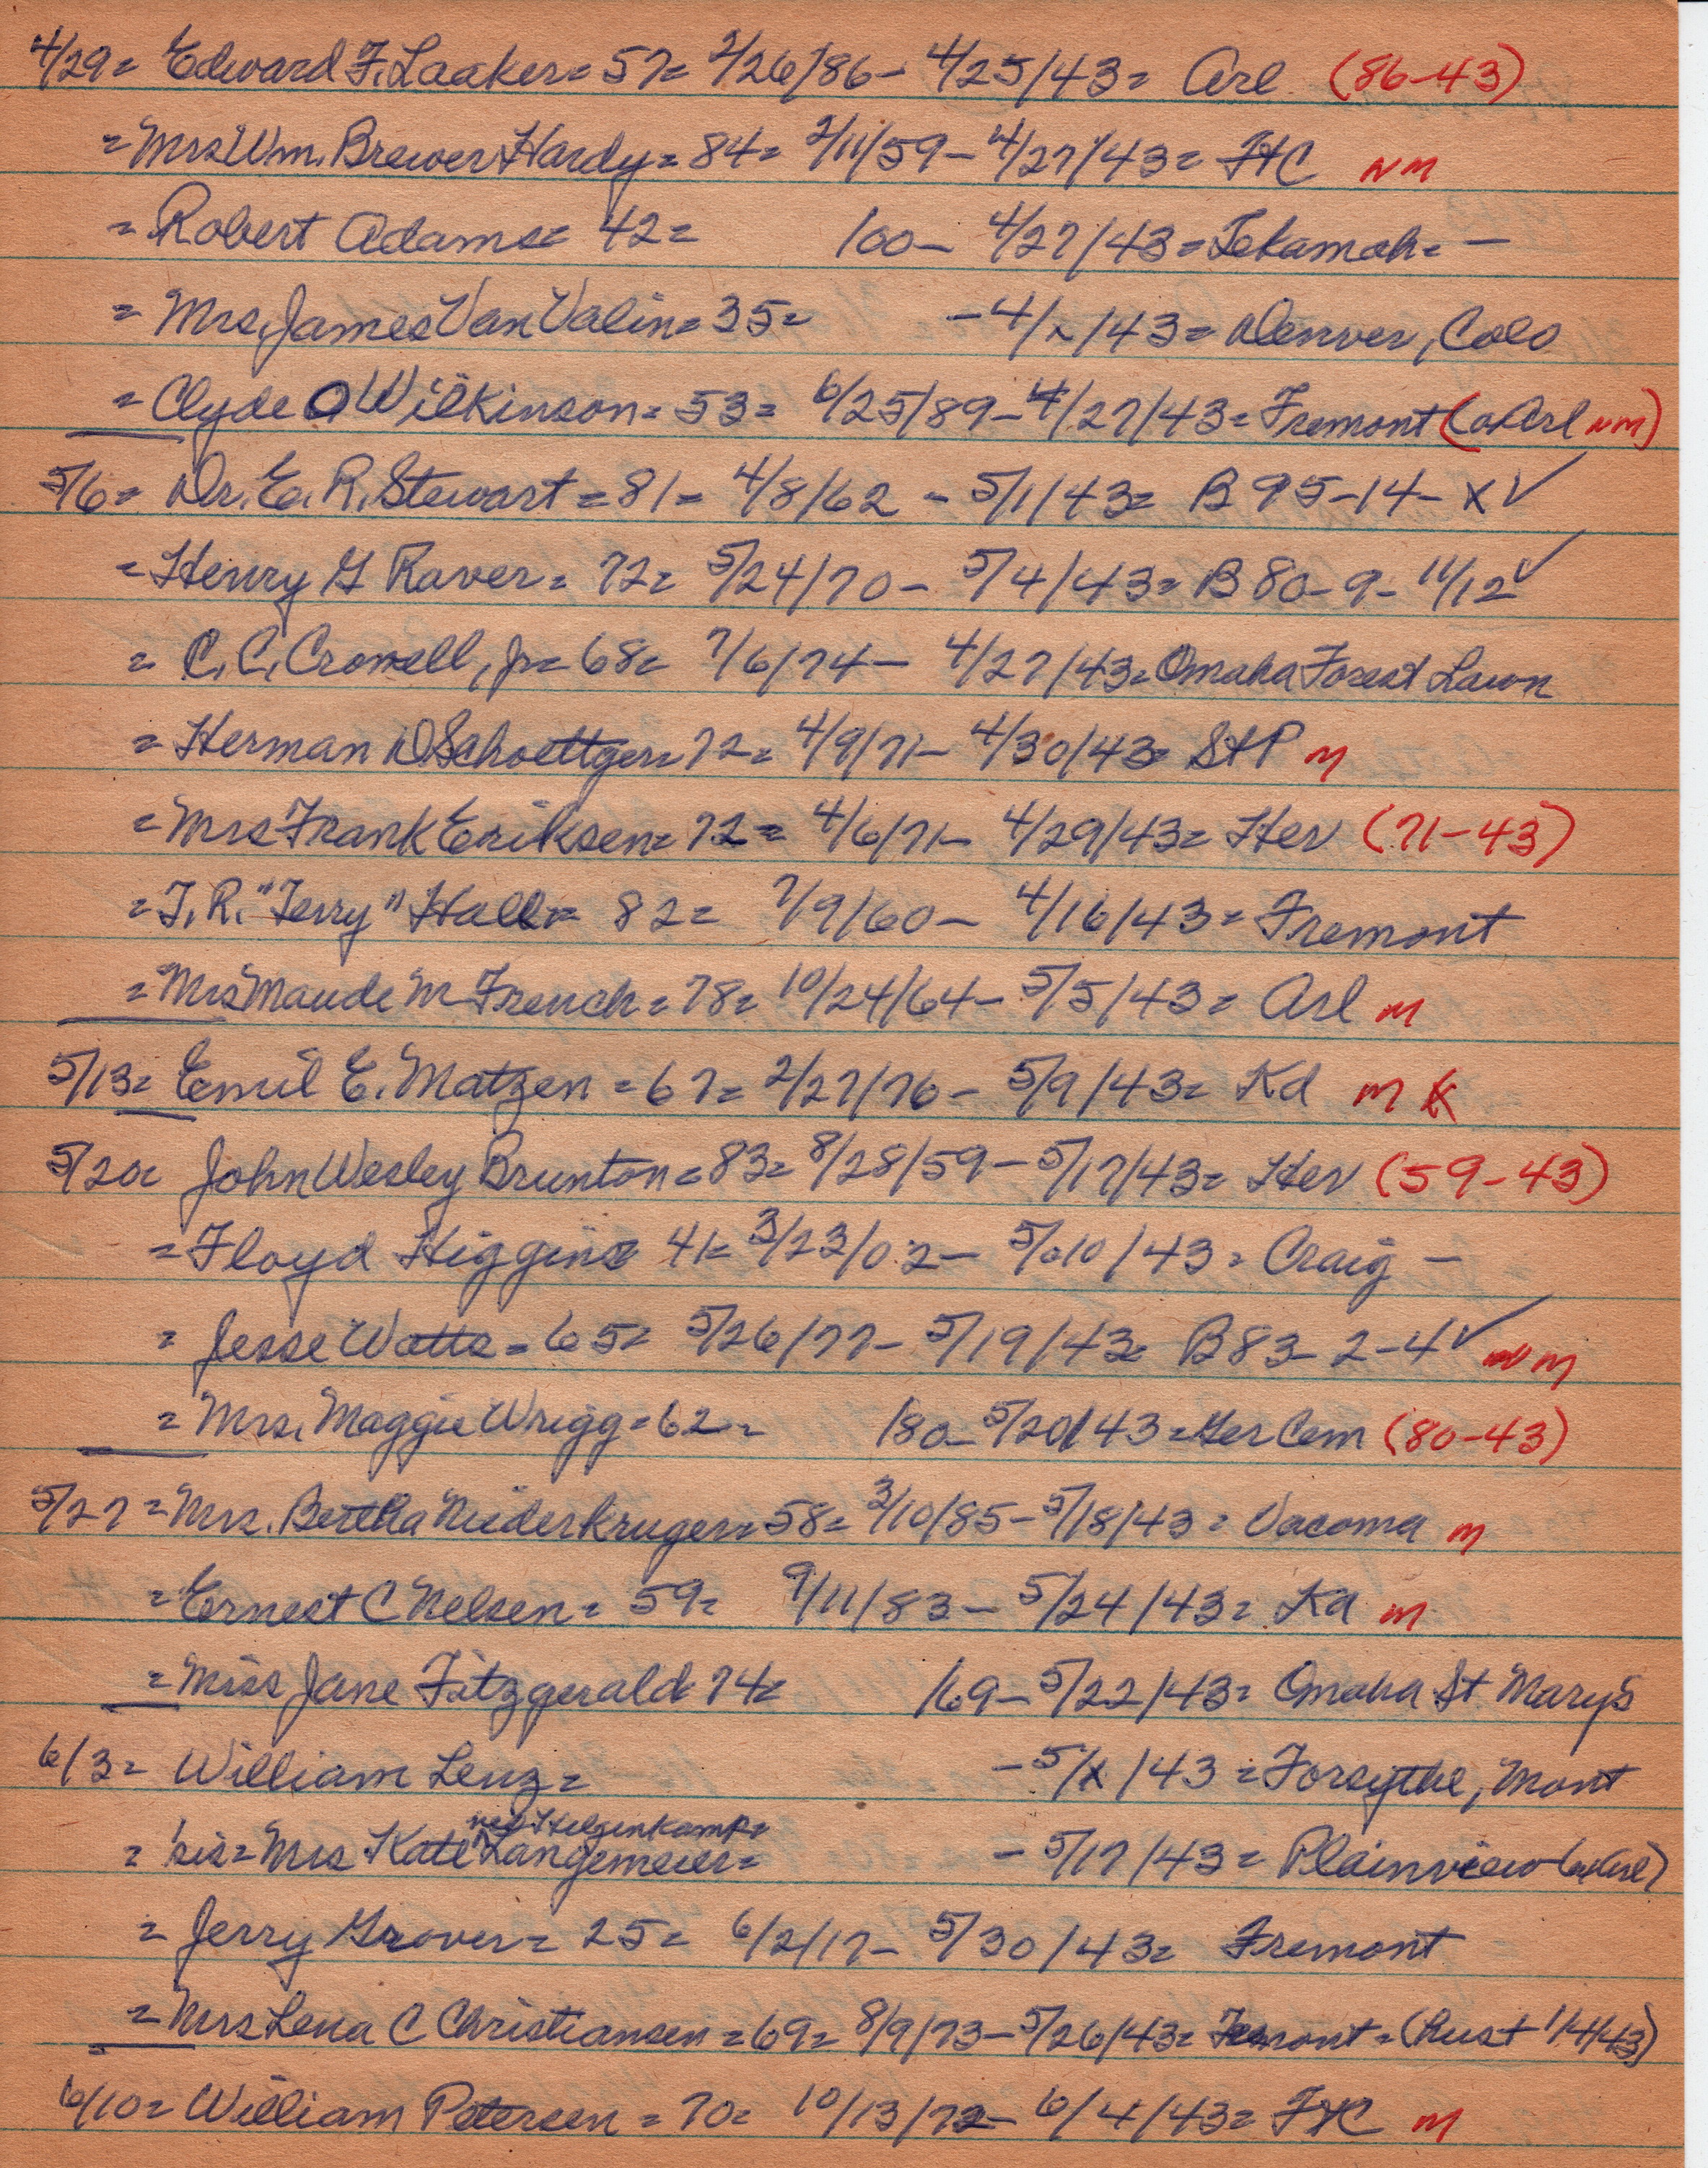 4/29= Edward F. Laaker= 57= 2/26/86- 4/25/43= Arl (86-43)
= Mrs Wm. Brewer Hardy= 84= 2/11/59- 4/27/43= FtC NM
= Robert Adams= 42= /00- 4/27/43= Tekamah= -
= Mrs. James Van Valin= 35= -4/ /43= Denver, Colo
= Clyde O Wilkinson= 53= 6/25/89- 4/27/43= Fremont (oxArl NM)
5/6= Dr. E. R. Stewart= 81= 4/8/62 - 5/1/43= B 95-14- X✓
= Henry G Raver= 72= 5/24/70- 5/4/43= B 80-9- 11/12✓
= C. C. Crowell, Jr= 68= 7/6/74- 4/27/43= Omaha Forest Lawn
= Herman D Schoettger= 72= 4/9/71- 4/30/43= StP M
= Mrs Frank Eriksen= 72= 4/6/71- 4/29/43= Her (71-43)
= T. R. "Terry" Hall= 82= 7/9/60- 4/16/43= Fremont
= Mrs Maude M French= 78= 10/24/64- 5/5/43= Arl M
5/13= Emil E. Matzen= 67= 2/27/76- 5/9/43= Kd M K
5/20= John Wesley Brunton= 83= 8/28/59- 5/17/43= Her (59-43)
= Floyd Higgins 41= 3/23/02- 5/10/43= Craig -
= Jesse Watts= 65= 5/26/77- 5/19/43= B 83-2-4✓ NM
= Mrs. Maggie Wrigg= 62= /80- 5/20/43= Ger Cem (80-43)
5/27= Mrs. Bertha Niederkruger= 58= 3/10/85- 5/18/43= Vacoma M
= Ernest C Nelsen= 59= 9/11/83- 5/24/43= Ka M
= Miss Jane Fitzgerald 74= /69- 5/22/43= Omaha St Marys
6/3= William Lenz= -5/X/43= Forsythe, Mont
nee Helgenkamp=
= sis= Mrs Kate Langemeier= - 5/17/43= Plainview (oxArl)
= Jerry Grover= 25= 6/2/17- 5/30/43= Fremont
= Mrs Lena C Christiansen= 69= 8/9/73- 5/26/43= Fremont= (Rust 1/4/43)
6/10= William Petersen= 70= 10/13/72- 6/4/43= FtC M